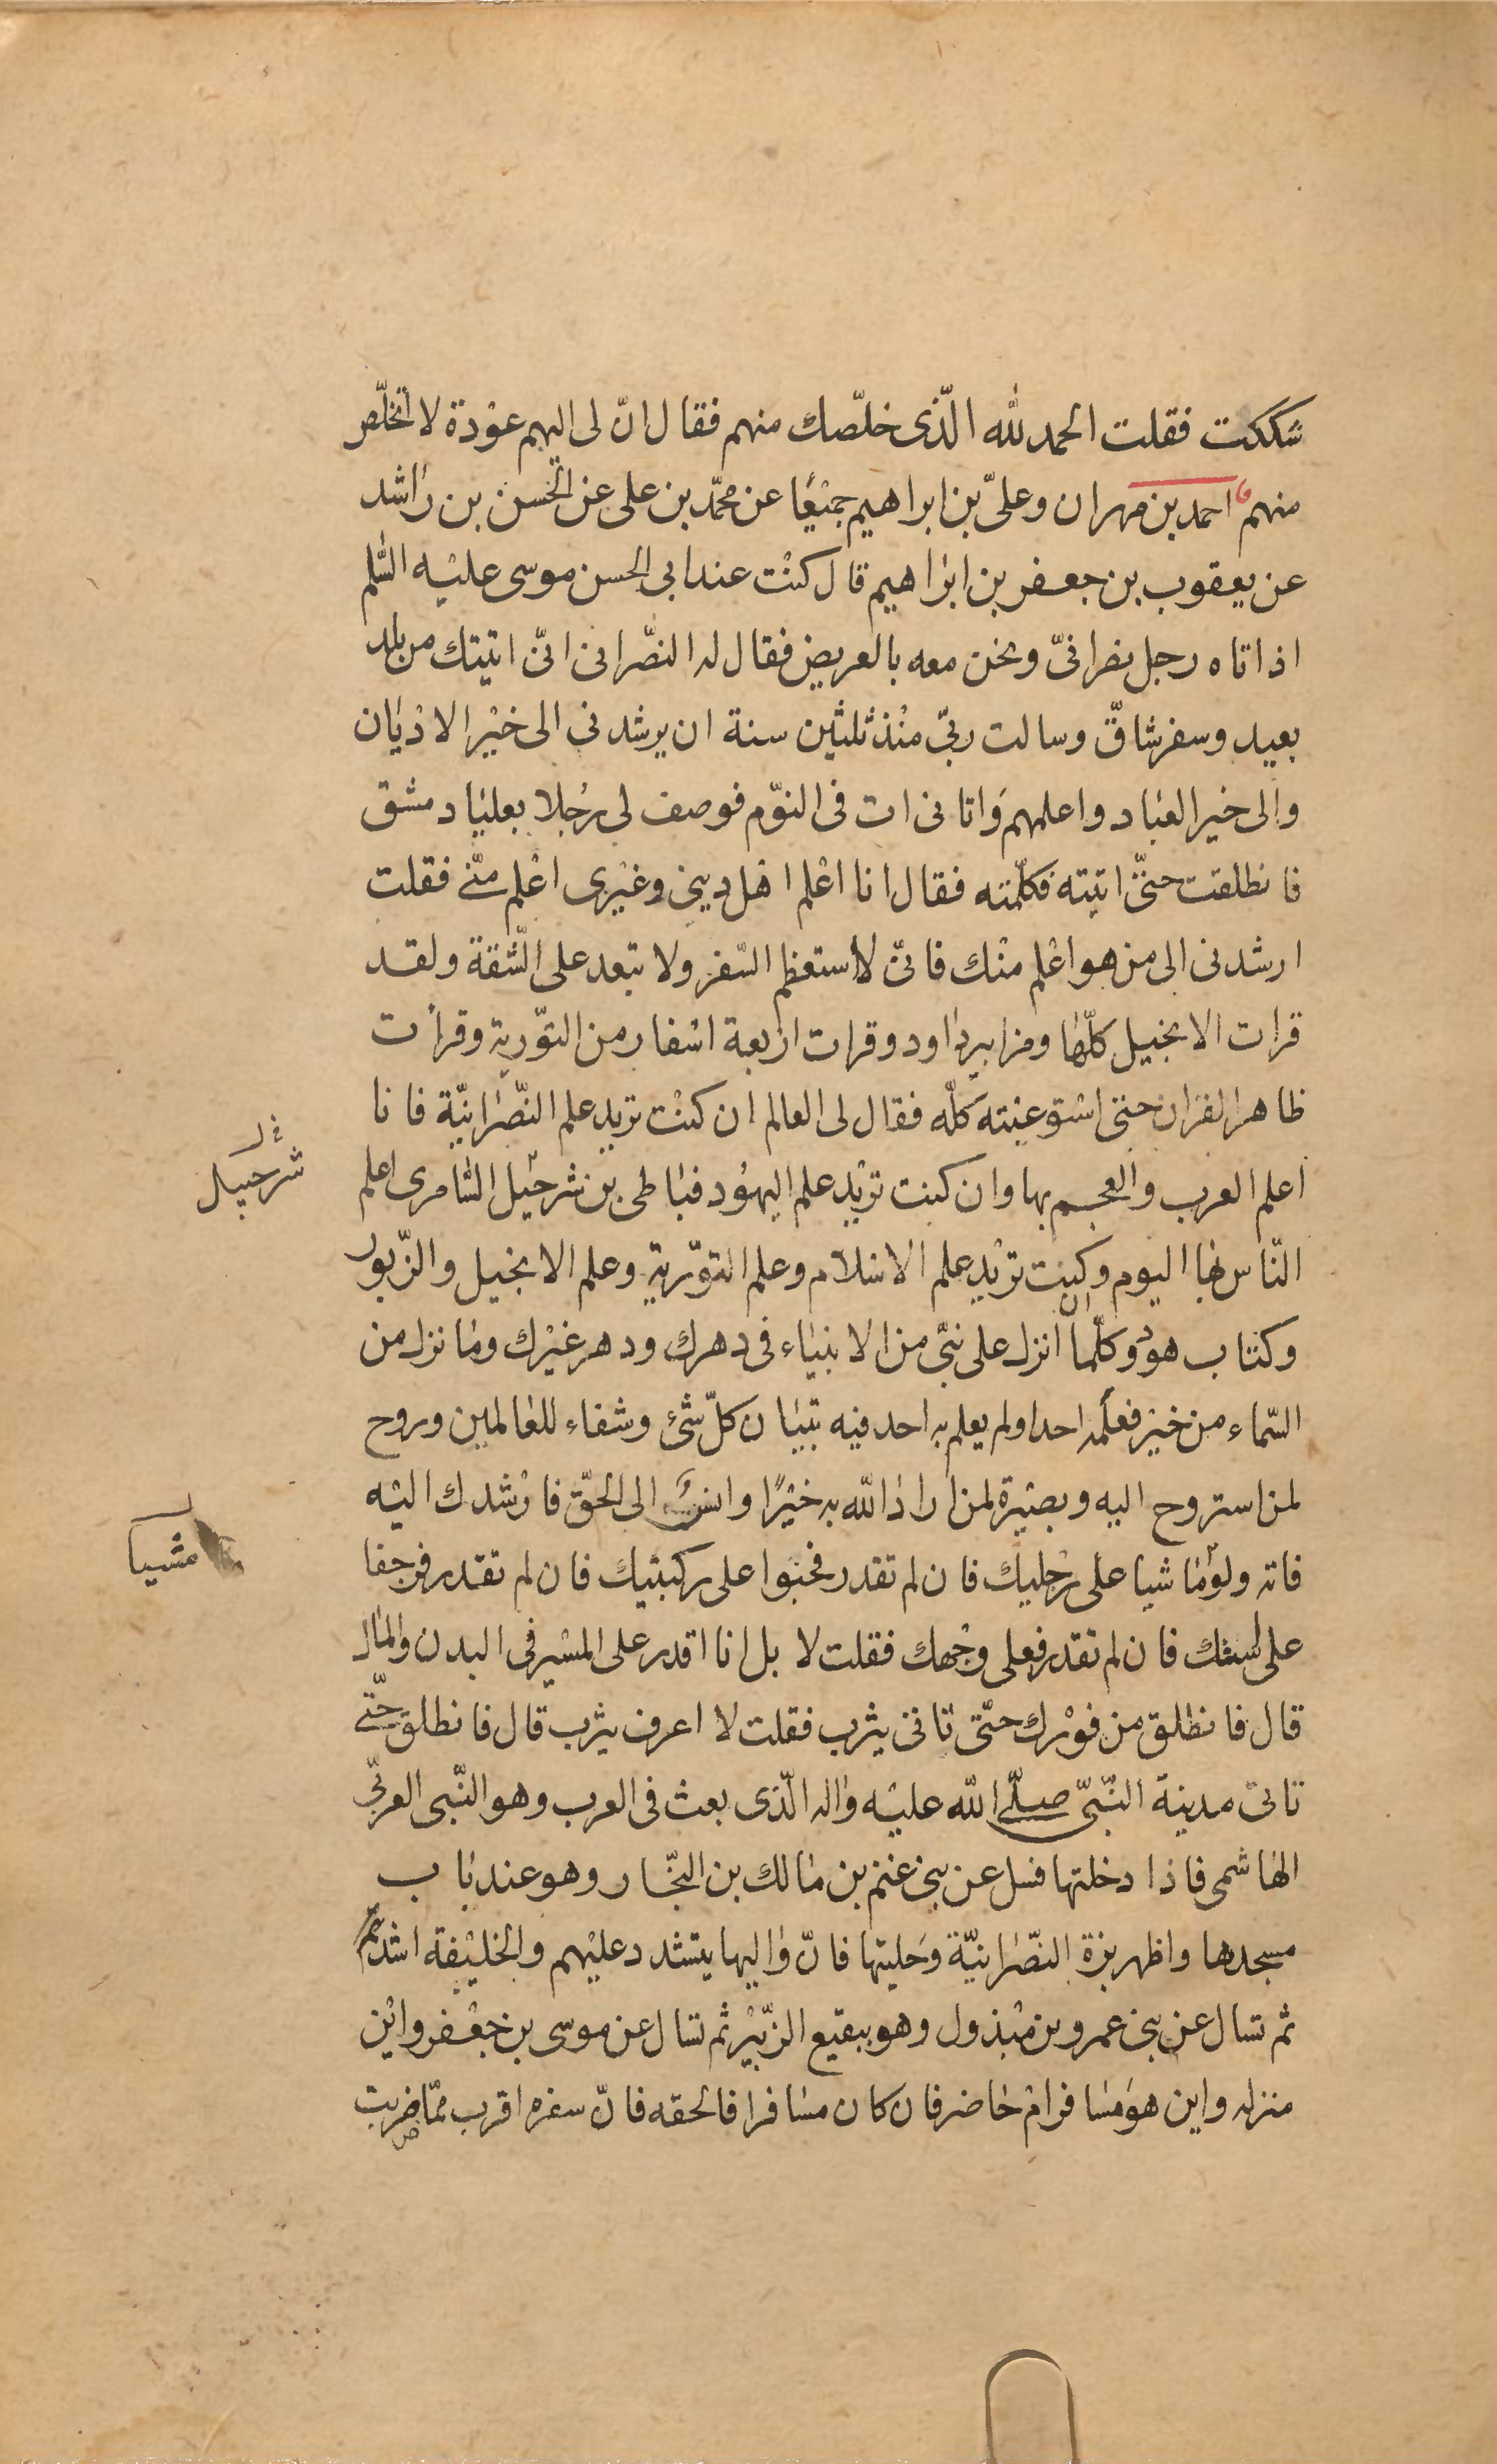 شككت فقلت الحمد لله الّذى خلّصك منهم فقال انّ لى اليهم عوْدة لا اتخلّص
منهم احمد بن مهران وعلىّ بن ابراهيم جميْعًا عن محمّد بن على عن الحسن بن راشد
عن يعقوب بن جعفر بن ابراهيم قال كنْت عند ابى الحسن موسى عليْه السّلم
اذ اتاه رجل نصرانىّ ونحن معه بالعريض فقال له النصّرانى انّى اتيتك من بلد
بعيد وسفر شاقّ وسالت ربّى منْذ ثلثين سنة ان يرشدنى الى خيْر الاديان
والى خير العباد واعلمهم وَاتانى ات فى النوّم فوصف لى رجُلا بعليا دمشق
فانطلقت حتّى اتيته فكلّمته فقال انا اعْلم اهْل دينى وغيْرى اعْلم منّى فقلت
ارشدنى الى من هو اعْلم منْك فانّى لا استعظم السّفر ولا تبعد على الشّقة ولقد
قرات الانجيل كلّها ومزامير داود وقرات اربعة اسْفار من التوّرية وقرأت
ظاهر القران حتى اسْتوعبته كَلّه فقال لى العالم ان كنْت تريد علم النصّرانيّة فانا
اعلم العرب والعجم بها وان كنت تريْد علم اليهوُد فباطى بن شرحيل السّامرى اعلم
شرحبيل
النّاس بها اليوم وان كنت تريْد علم الاسْلام وعلم التوّرية وعلم الانجيل والزّبور
وكتاب هود وكلّما انزل على نبىّ من الانبياء فى دهرك ودهر غيْرك وما نزل من
السّماء من خبر فعلمه احد اولم يعلم به احد فيه تبيان كلّ شئ وشفاء للعالمين وروح
لمن استروح اليه وبصيْرة لمن اراد الله به خيْرًا وانس الى الحقّ فارْشدك اليْه
فاته ولو ماشيا على رجْليك فان لم تقدر فحبْوا على ركبتيك فان لم تقدر فزحفا
مشيا
على استك فان لم تقدر فعلى وجْهك فقلت لا بل انا اقدر على المسْير فى البدن والمال
قال فانطلق من فوْرك حتّى تاتى يثرب فقلت لا اعرف يثرب قال فانطلق حتّى
تاتى مدينة النّبىّ صلّى الله عليْه واله الّذى بعث فى العرب وهو النّبى العربىّ
الهاشمى فاذا دخلتها فسل عن بنى غنم بن مالك بن النجّار وهو عند باب
مسجدها واظهر بزة النصّرانيّة وحَليتها فانّ واليها يتشدد عليْهم والخليْفة اشدّ
ثم تسال عن بنى عمرو بن مبْذول وهو ببقيع الزّبيْر ثم تسال عن موسى بن جعْفر وايْن
منزله واين هو مَسافر امْ حاضر فان كان مسافرا فالحقه فانّ سفره اقرب ممّا ضربت